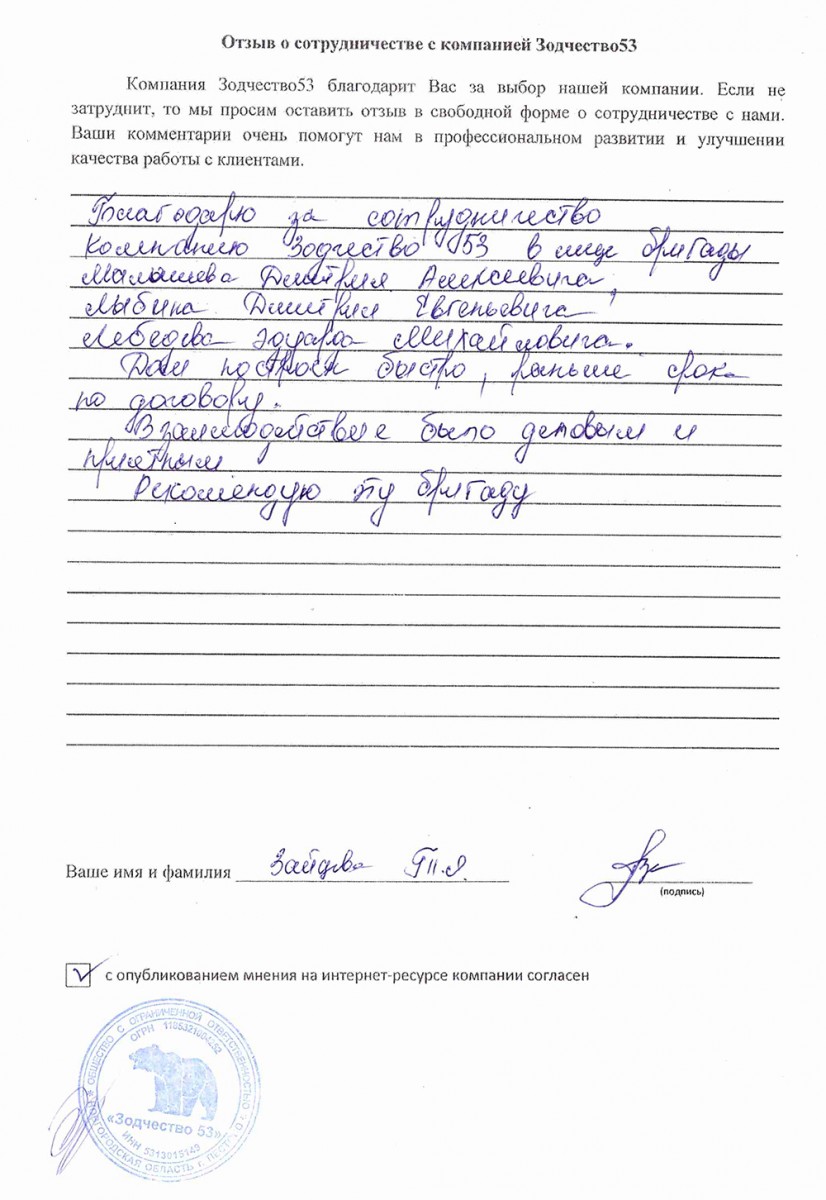 Отзыв о сотрудничестве с компанией Зодчество53
Компания Зодчество53 благодарит Вас за выбор нашей компании. Если не
затруднит, то мы просим оставить отзыв в свободной форме о сотрудничестве с нами.
Ваши комментарии очень помогут нам в профессиональном развитии и улучшении
качества работы с клиентами.
Благодарю за сотрудничество
Компанию Зодчество 53 в лице бригады
Малышева Дмитрия Алексеевича,
Лыбина Дмитрия Евгеньевича
Лебедева Эдуарда Михайловича.
Дом построен быстро, раньше срока
по договору.
Взаимодействие было деловым и
приятным
Рекомендую эту бригаду
Ваше имя и фамилия Зайцева
(подпись)
с опубликованием мнения на интернет-ресурсе компании согласен
ОБЩЕСТВО С ОГРАНИЧЕННОЙ ОТВЕТСТВЕННОСТЬЮ
ОГРН
«Зодчество 53»
ИНН 5313015149
НОВГОРОДСКАЯ ОБЛАСТЬ г.